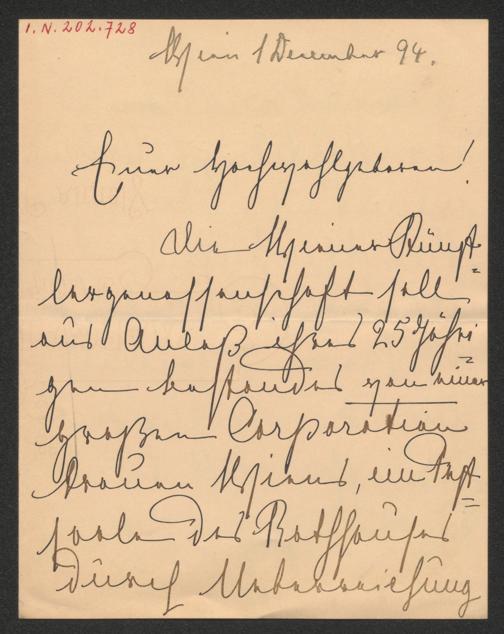 I.N. 202.728
Wien 1 December 94.
Euer Hochwohlgeboren!
Die Wiener Künst=
lergenossenschaft soll
aus Anlaß ihres 25 jähri
gen bestandes von einer
großen Corporation
Frauen Wiens, im Fest=
saale des Rathhauses
durch Ueberreichung